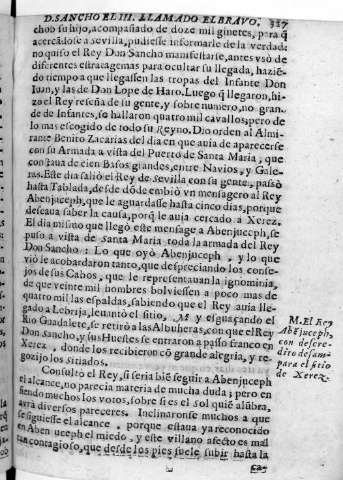 D. SANCHO EL III. LLAMADO EL BRAVO. 327
cho su hijo, acompañado de doze mil ginetes, para q̃
acercãdose a Sevilla, pudiesse informarle de la verdad:
no quiso el Rey Don Sancho manifestarse, antes vsò de
diferentes estratagemas para ocultar su llegada, haziẽ-
do tiempo a que llegassen las tropas del Infante Don
Iuan, y las de Don Lope de Haro. Luego q̃ llegaron, hi-
zo el Rey reseña de su gente, y sobre numero, no gran-
de de Infantes, se hallaron quatro mil cavallos; pero de
lo mas escogido de todo su Reyno. Dio orden al Almi-
rante Benito Zacarias del dia en que auia de aparecerse
con su Armada a vista del Puerto de Santa Maria, que
constaua de cien Basos grandes, entre Navios, y Gale-
ras. Este dia saliò el Rey de Sevilla con su gente, passò
hasta Tablada, desde dõde embiò vn mensagero al Rey
Abenjuceph, que le aguardasse hasta cinco dias, porque
deseaua saber la causa, porq̃ le auia cercado a Xerez.
El dia mismo que llegò este mensage a Abenjuceph, se
puso a vista de Santa Maria toda la armada del Rey
Don Sancho: Lo que oyò Abenjuceph, y lo que
viò le acobardaron tanto, que despreciando los conse-
jos de sus Cabos, que le representauan la ignominia,
de que veinte mil hombres bolviessen a poco mas de
quatro mil las espaldas, sabiendo que el Rey auia lle-
gado a Lebrija, leuantò el sitio, M y esguaçando el
Rio Guadalete, se retirò a las Albuheras, con que el Rey
Don Sancho, y sus Huestes se entraron a passo franco en
Xerez, donde los recibieron cõ grande alegria, y re-
gozijo los sitiados.
M. El Rey
Abẽjuceph,
con descre-
dito desam-
para el sitio
de Xerez.
Consultò el Rey, si seria biẽ seguir a Abenjuceph
el alcance, no parecia materia de mucha duda; pero en
siendo muchos los votos, sobre si es el sol quiẽ alũbra,
aurà diversos pareceres. Inclinaronse muchos a que
se siguiesse el alcance, porque estaua ya reconocido
en Abenjuceph el miedo, y este villano afecto es mal
tan contagioso, que desde los pies suele subir hasta la